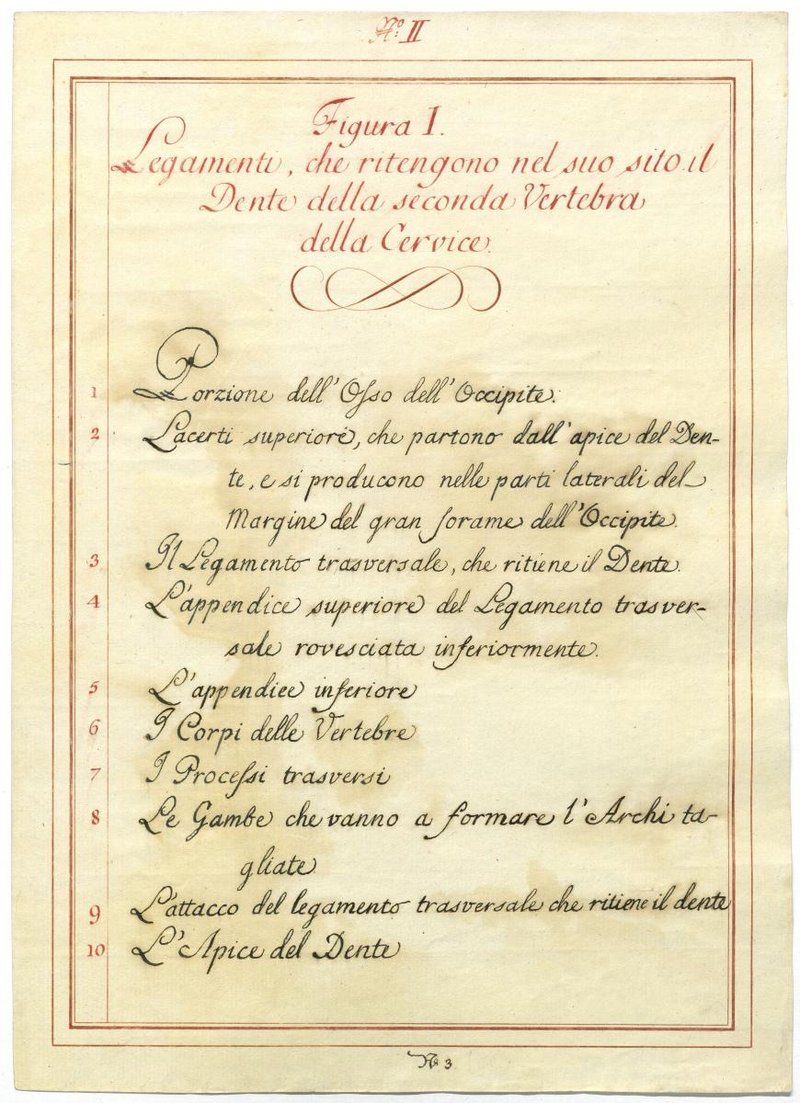 N.º II
Figura I.
Legamenti, che ritengono nel suo sito il
Dente della seconda Vertebra
della Cervice.
1 Porzione dell'Oſso dell'Occipite.
2 Lacerti superiori, che partono dall'apice del Den-
te, e si producono nelle parti laterali del
Margine del gran forame dell'Occipite.
3 Il Legamento trasversale, che ritiene il Dente.
4 L'appendice superiore del Legamento trasver-
sale rovesciata inferiormente.
5 L'appendice inferiore
6 I Corpi delle Vertebre
7 I Proceſsi trasversi
8 Le Gambe che vanno a formare l'Archi ta-
gliate
9 L'attacco del legamento trasversale che ritiene il dente
10 L'Apice del Dente
Nº 3